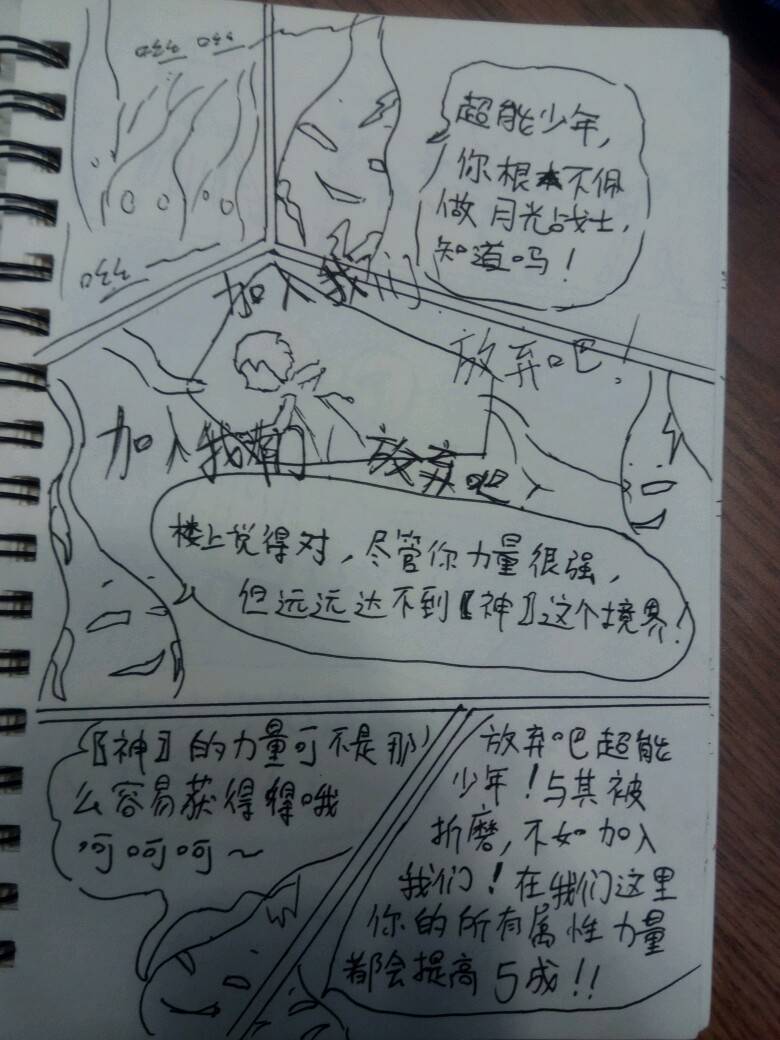 超能少年,
你根本不佩
做月光战士,
知道吗!
加入我们
放弃吧!
加入我们
放弃吧
楼上说得对,尽管你力量很强,
但远远达不到〖神〗这个境界!
〖神〗的力量可不是那
么容易获得得哦
呵呵呵~
放弃吧超能
少年!与其被
折磨,不如加入
我们!在我们这里
你的所有属性力量
都会提高5成!!